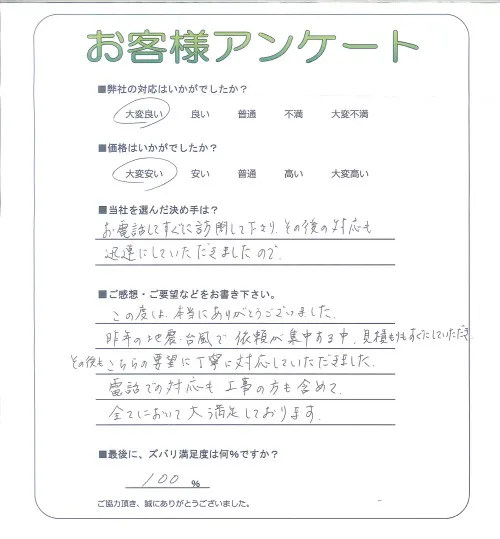 お客様アンケート
■弊社の対応はいかがでしたか？
大変良い 良い 普通 不満 大変不満
■価格はいかがでしたか？
大変安い 安い 普通 高い 大変高い
■当社を選んだ決め手は？
お電話してすぐに訪問して下さり、その後の対応も
迅速にしていただきましたので。
■ご感想・ご要望などをお書き下さい。
この度は、本当にありがとうございました。
昨年の地震・台風で依頼が集中する中、見積もりもすぐにしていただき、
その後もこちらの要望に丁寧に対応していただきました。
電話での対応も工事の方も含めて、
全てにおいて大満足しております。
■最後に、ズバリ満足度は何%ですか？
100 %
ご協力頂き、誠にありがとうございました。